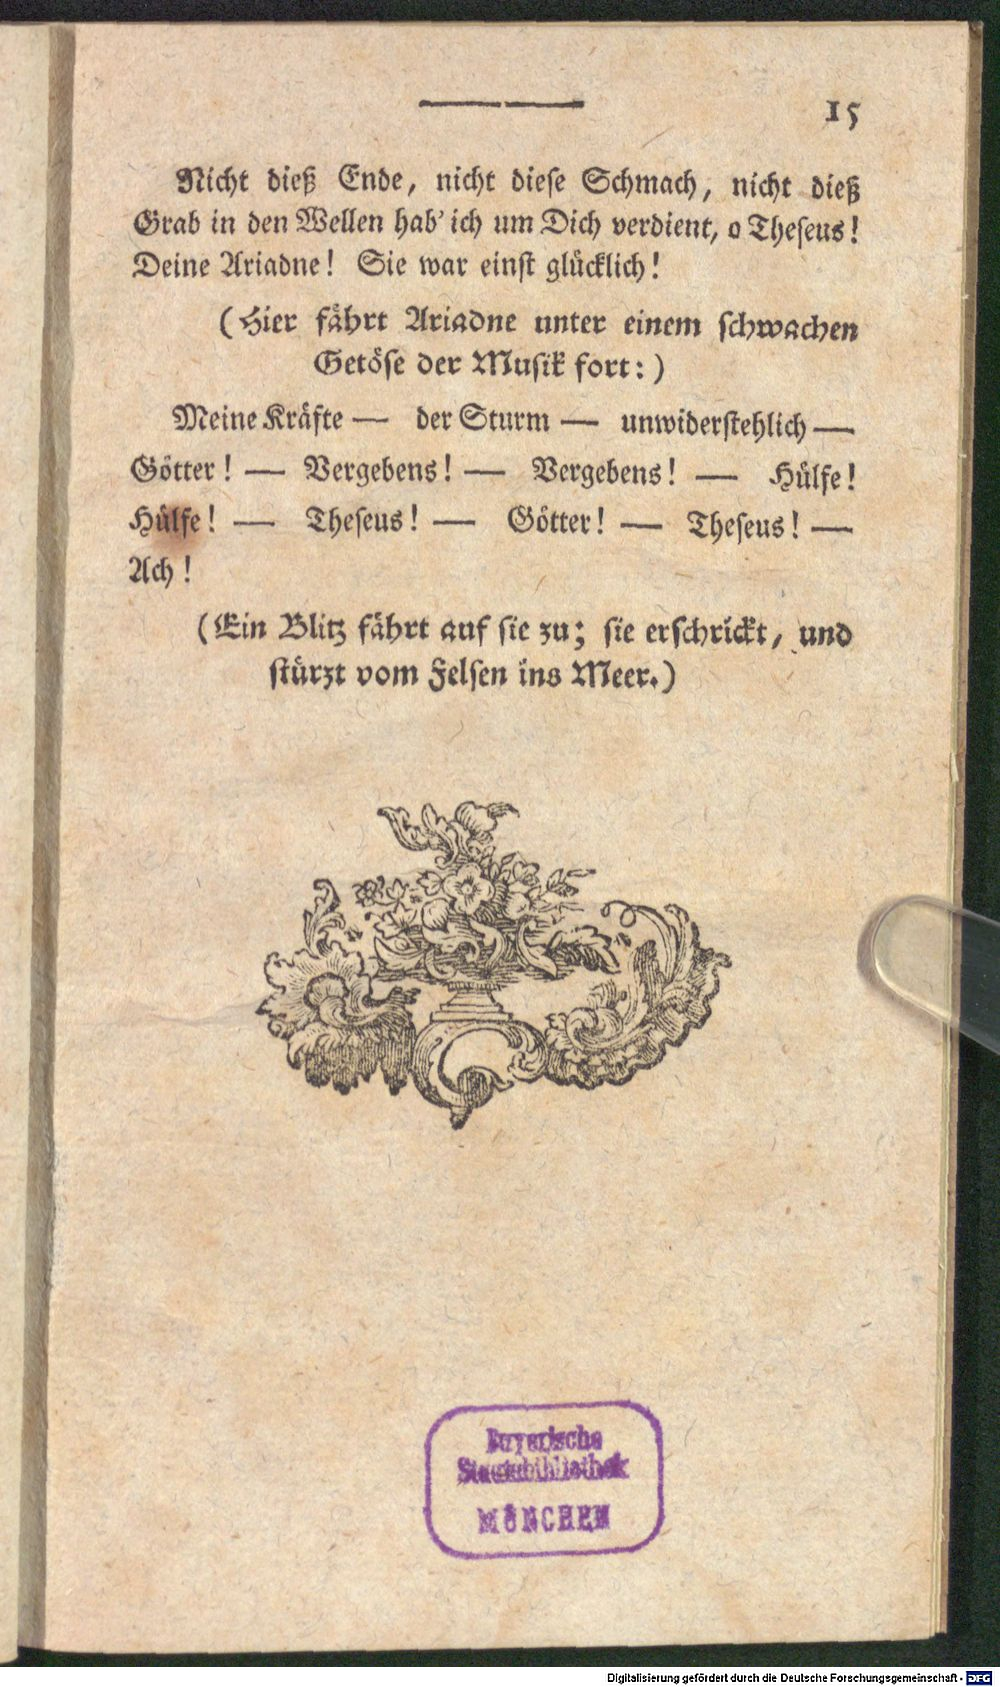 15
Nicht dieß Ende, nicht diese Schmach, nicht dieß
Grab in den Wellen hab' ich um Dich verdient, o Theseus!
Deine Ariadne! Sie war einst glücklich!
(Hier fährt Ariadne unter einem schwachen
Getöse der Musik fort:)
Meine Kräfte — der Sturm — unwiderstehlich —
Götter! — Vergebens! — Vergebens! — Hülfe!
Hülfe! — Theseus! — Götter! — Theseus! —
Ach!
(Ein Blitz fährt auf sie zu; sie erschrickt, und
stürzt vom Felsen ins Meer.)
Bayerische
Staatsbibliothek
MÜNCHEN
Digitalisierung gefördert durch die Deutsche Forschungsgemeinschaft - DFG